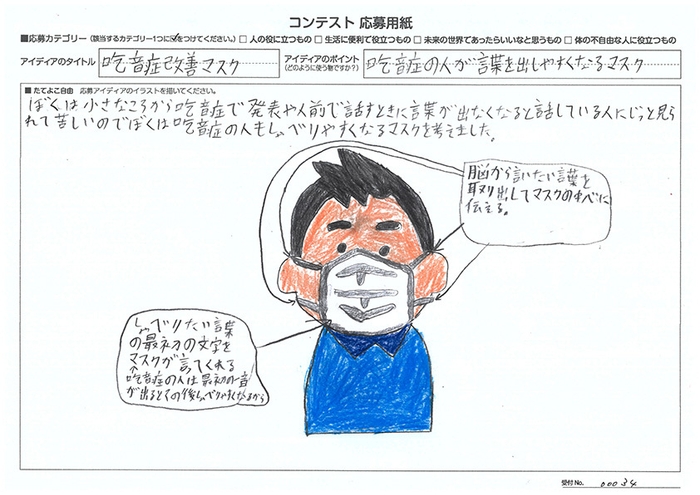 コンテスト 応募用紙
■応募カテゴリー（該当するカテゴリー1つに☑をつけてください。） □ 人の役に立つもの □ 生活に便利で役立つもの □ 未来の世界であったらいいなと思うもの □ 体の不自由な人に役立つもの
アイディアのタイトル 吃音症改善マスク
アイディアのポイント
（どのように使う物ですか？） 吃音症の人が言葉を出しやすくなるマスク
■たてよこ自由 応募アイディアのイラストを描いてください。
ぼくは小さなころから吃音症で発表や人前で話すときに言葉が出なくなると話している人にじっと見ら
れて苦しいのでぼくは吃音症の人もしゃべりやすくなるマスクを考えました。
脳から言いたい言葉を
取り出してマスクの中べに
伝える。
しゃべりたい言葉
の最初の文字を
マスクが言ってくれる
↑
吃音症の人は最初の一音
が出るとその後しゃべりやすくなるから
受付No. 00034